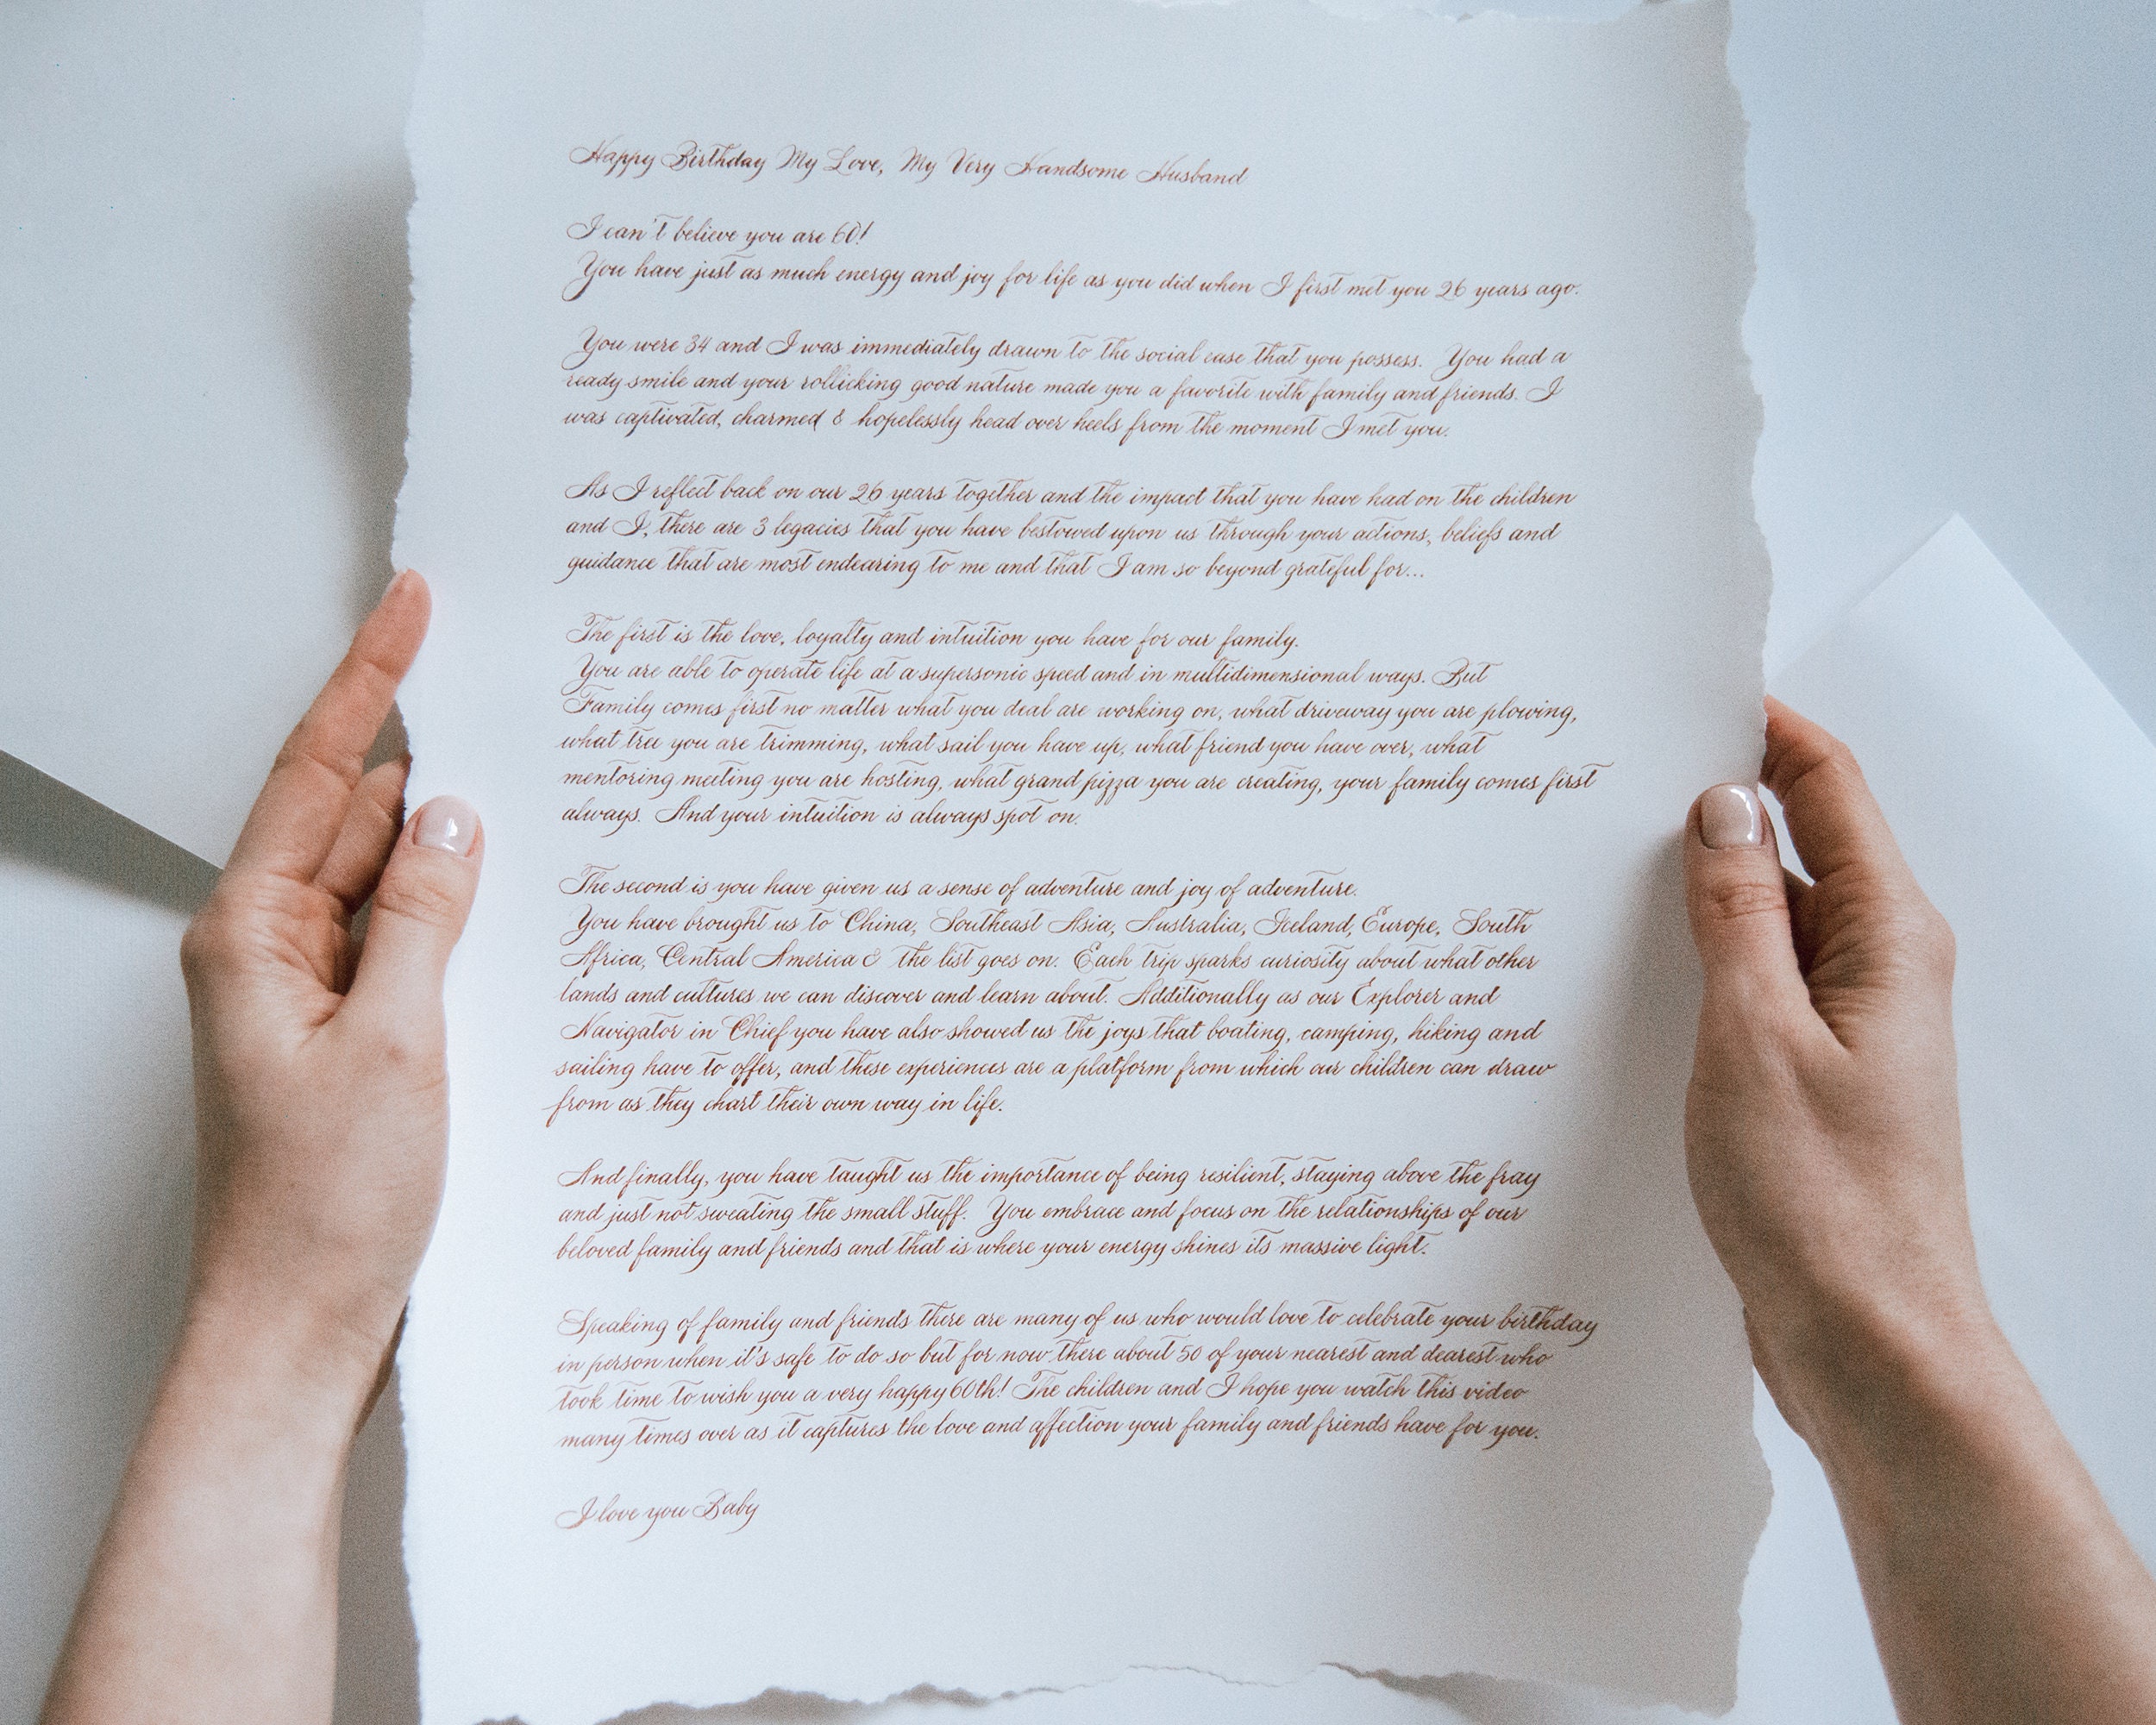 Happy Birthday My Love, My Very Handsome Husband
I can't believe you are 60!
You have just as much energy and joy for life as you did when I first met you 26 years ago.
You were 34 and I was immediately drawn to the social ease that you possess. You had a
ready smile and your rollicking good nature made you a favorite with family and friends. I
was captivated, charmed & hopelessly head over heels from the moment I met you.
As I reflect back on our 26 years together and the impact that you have had on the children
and I, there are 3 legacies that you have bestowed upon us through your actions, beliefs and
guidance that are most endearing to me and that I am so beyond grateful for...
The first is the love, loyalty and intuition you have for our family.
You are able to operate life at a supersonic speed and in multidimensional ways. But
Family comes first no matter what you deal are working on, what driveway you are plowing,
what tree you are trimming, what sail you have up, what friend you have over, what
mentoring meeting you are hosting, what grand pizza you are creating, your family comes first
always. And your intuition is always spot on.
The second is you have given us a sense of adventure and joy of adventure.
You have brought us to China, Southeast Asia, Australia, Iceland, Europe, South
Africa, Central America & the list goes on. Each trip sparks curiosity about what other
lands and cultures we can discover and learn about. Additionally as our Explorer and
Navigator in Chief you have also showed us the joys that boating, camping, hiking and
sailing have to offer, and these experiences are a platform from which our children can draw
from as they chart their own way in life.
And finally, you have taught us the importance of being resilient, staying above the fray
and just not sweating the small stuff. You embrace and focus on the relationships of our
beloved family and friends and that is where your energy shines its massive light.
Speaking of family and friends there are many of us who would love to celebrate your birthday
in person when it's safe to do so but for now there about 50 of your nearest and dearest who
took time to wish you a very happy 60th! The children and I hope you watch this video
many times over as it captures the love and affection your family and friends have for you.
I love you Baby